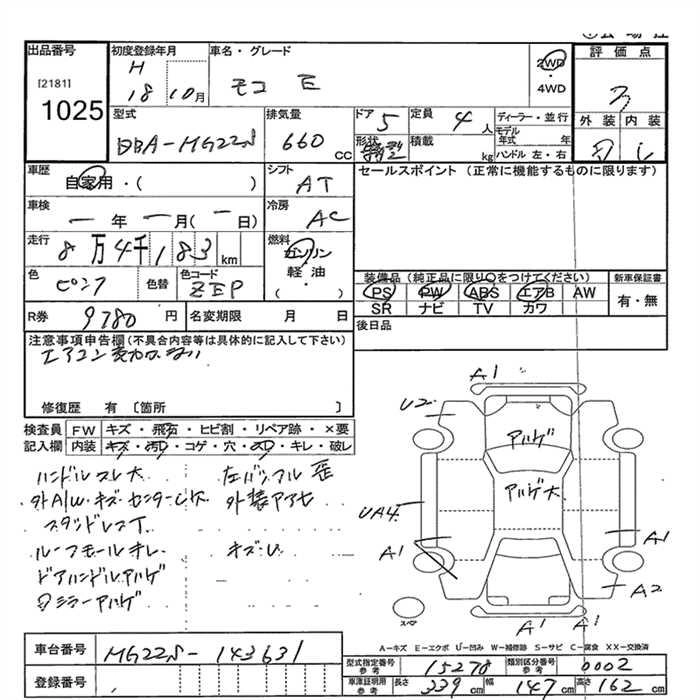 出品番号
[2181]
1025
初度登録年月
H
18 10月
車名・グレード
モコ E
2WD
・
4WD
評価点
外装 内装
型式
DBA-MG22S
排気量
660 cc
ドア 5
形状
定員 4 人
積載 kg
ディーラー・並行
モデル年式 年
ハンドル 左・右
車歴
自家用・( )
シフト
AT
セールスポイント (正常に機能するものに限ります)
車検
ー年ー月(ー日)
冷房
AC
走行
8万4千183 km
燃料
ガソリン
軽油
・
( )
色
ピンク
色替
色コード
ZEP
装備品 (純正品に限り○をつけてください)
PS PW ABS エアB AW
SR ナビ TV カワ
新車保証書
有・無
R券 9780 円
名変期限 月 日
後日品
注意事項申告欄(不具合内容等は具体的に記入して下さい)
修復歴 有 〔箇所 〕
検査員 FW キズ・飛石・ヒビ割・リペア跡・×要
記入欄 内装 キズ・汚れ・コゲ・穴・スレ・キレ・破レ
ハンドルスレ大
外A/W・キズ・センターC欠
スタッドレスT
ルーフモールキレ
ドアハンドルハゲ
ミラーハゲ
キズ・U
A1
U2
UA4
A1
A1
A2
A1
A1
スペア
A-キズ E-エクボ U-凹み W-補修跡 S-サビ C-腐食 XX-交換済
車台番号
MG22S-143631
登録番号
型式指定番号 参考 15278
類別区分番号 参考 0002
車庫証明用 参考 長さ 339 cm 幅 147 cm 高さ 162 cm